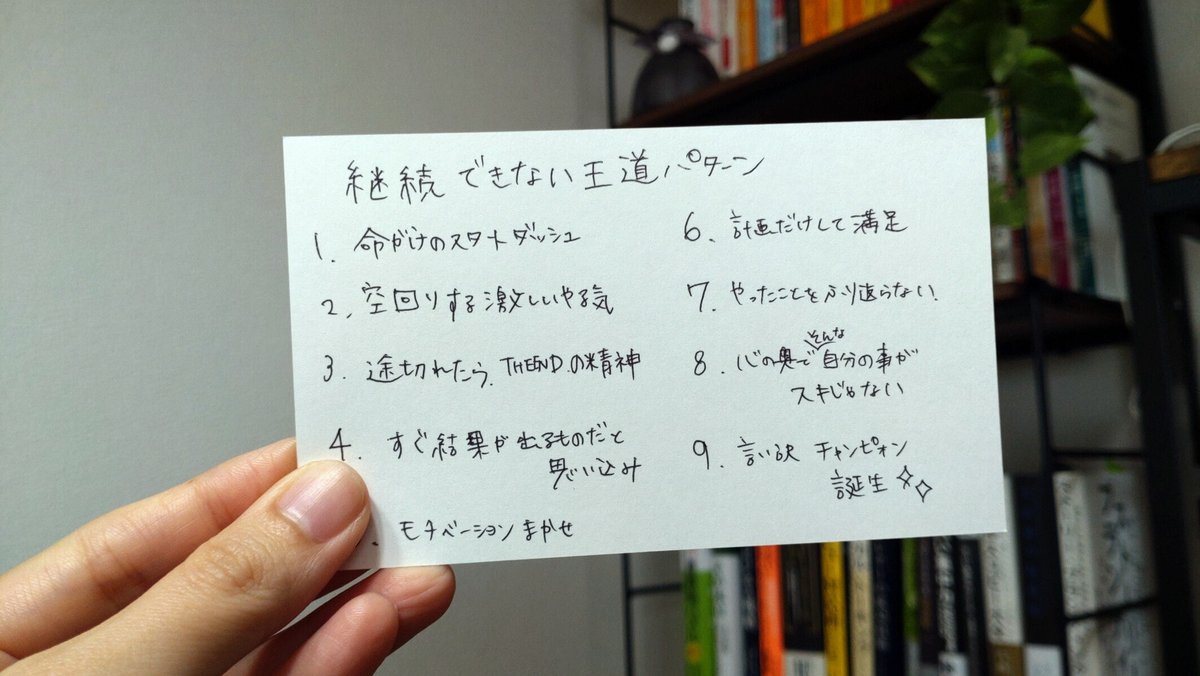 継続できない王道パターン
1. 命がけのスタートダッシュ
2. 空回りする激しいやる気
3. 途切れたら、THEND.の精神
4. すぐ結果が出るものだと
思い込み
. モチベーションまかせ
6. 計画だけして満足
7. やったことをふり返らない.
そんな
8. 心の奥で自分の事が
スキじゃない
9. 言い訳チャンピオン
誕生